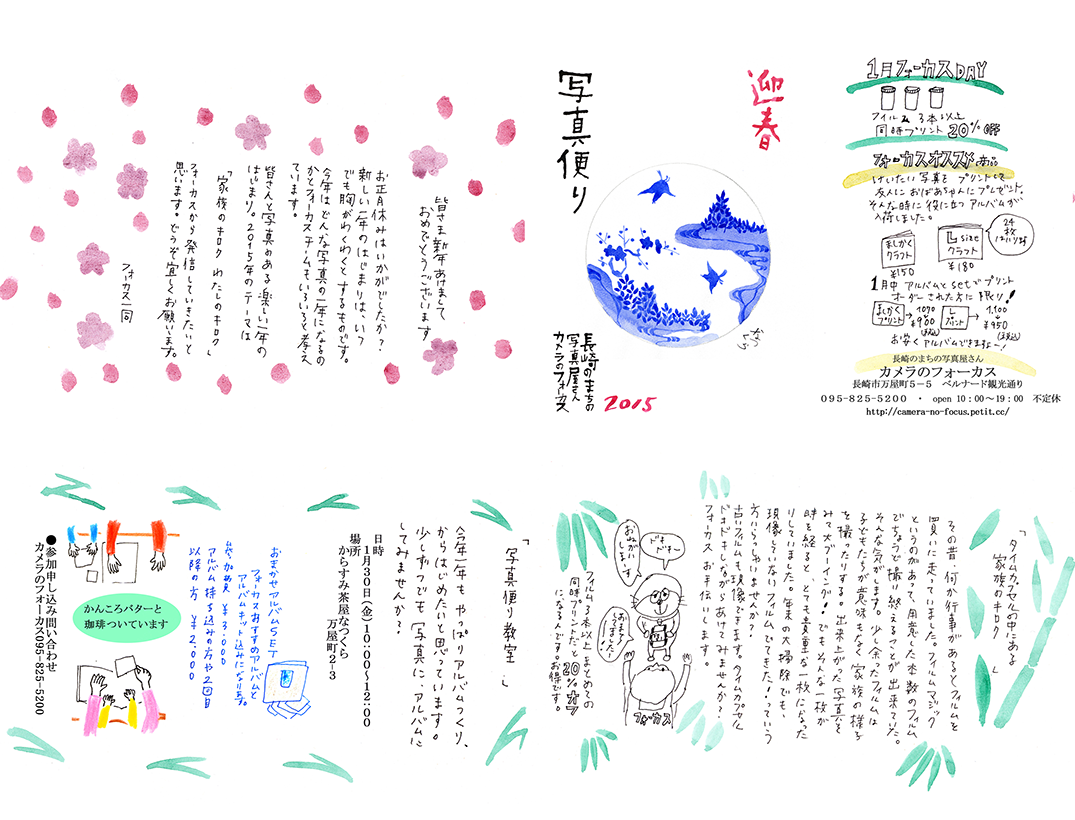 迎春
写真便り
長崎のまちの
写真屋さん
カメラのフォーカス
2015
1月フォーカスDAY
フィルム3本以上
同時プリント20%OFF
フォーカスオススメ商品
けいたい写真をプリントして
友人におばあちゃんにプレゼント。
そんな時に役に立つアルバムが
入荷しました。
24
枚
はいります
ましかく
クラフト
¥150
Lsize
クラフト
¥180
1月中アルバムとsetでプリント
オーダーされた方に限り!
ましかく
プリント
→
1070
¥900
(税込)
L
プリント
→
1,100
¥950
(税込)
お安くアルバムできますよ~!
長崎のまちの写真屋さん
カメラのフォーカス
長崎市万屋町5-5 ベルナード観光通り
095-825-5200 ・ open 10:00~19:00 不定休
http://camera-no-focus.petit.cc/
皆さま新年あけまして
おめでとうございます
お正月休みはいかがでしたか?
新しい一年のはじまりは、いつ
でも胸がわくわくとするものです。
今年はどんな写真の一年になるの
かとフォーカスチームもいろいろと考え
ています。
皆さんと写真のある楽しい一年の
はじまり。2015年のテーマは
「家族のキロク わたしのキロク」
フォーカスから発信していきたいと
思います。どうぞ宜しくお願いします。
フォーカス一同
「タイムカプセルの中にある
家族のキロク」
その昔、何か行事があるとフィルムを
買いに走っていました。フィルムマジック
というのがあって、用意した本数のフィルム
でちょうど撮り終えることが出来ていた。
そんな気がします。少し余ったフィルムは
子どもたちが意味もなく家族の様子
を撮ったりする。出来上がった写真を
みて大ブーイング!でもそんな一枚が
時を経ると、とても貴重な一枚になった
りしていました。年末の大掃除でも、
現像してないフィルムでてきた!っていう
方いらっしゃいませんか?
古いフィルムも現像できます。タイムカプセル
ドキドキしながらあけてみませんか?
フォーカスお手伝いします。
ドキ
ドキ~
おねがい
します
おまかせ
くださーい!
フォーカス
フィルム3本以上まとめての
同時プリントだと20%オフ
になるんです。お得です。
「写真便り教室」
今年一年もやっぱりアルバムづくり、
からはじめたいと思っています。
少しずつでも写真に、アルバムに
してみませんか?
日時
1月30日(金)10:00~12:00
場所
からすみ茶屋なつくら
万屋町2-3
おまかせアルバムSET
フォーカスおすすめのアルバムと
アルバムキット込みになります。
参加費 ¥3,000
アルバム持ち込みの方や2回目
以降の方 ¥2,000
かんころバターと
珈琲ついています
●参加申し込み問い合わせ
カメラのフォーカス095-825-5200